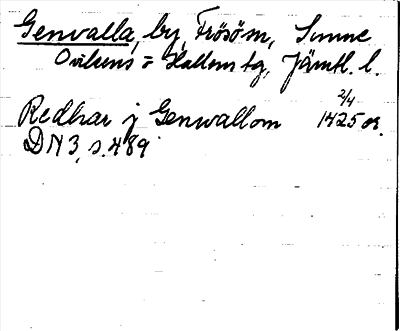 Genvalla, by, Frösö sn, Sunne
Oviken o Hallens tg, Jämtl. l.
2/4
Redhar j Genwallom 1425 or.
DN 3, s. 489